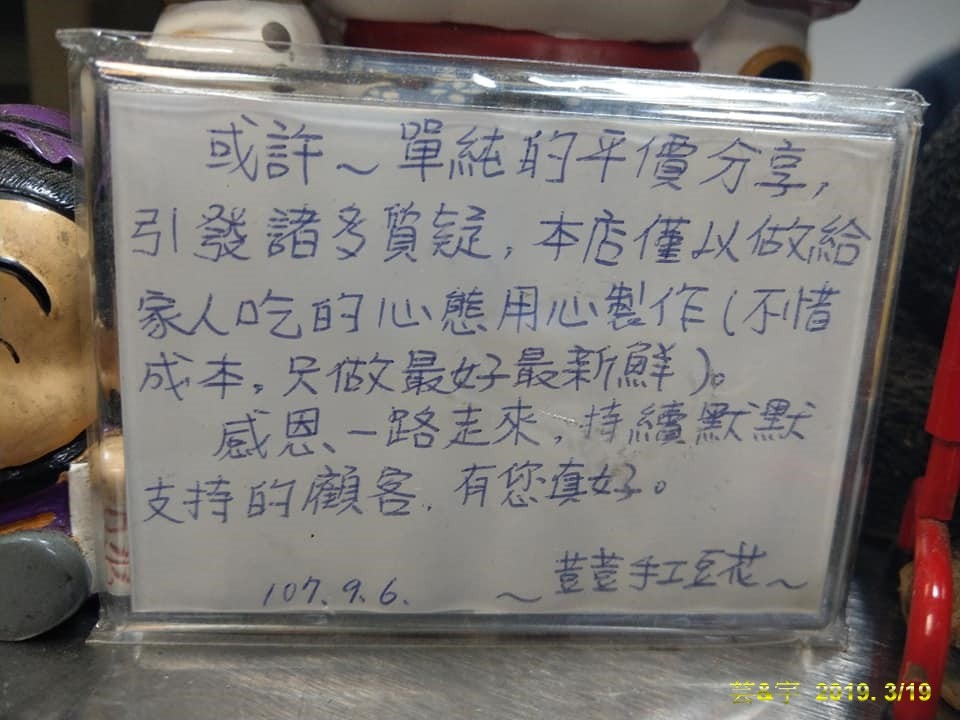 或許～單純的平價分享,
引發諸多質疑,本店僅以做給
家人吃的心態用心製作(不惜
成本,只做最好最新鮮)。
感恩一路走來,持續默默
支持的顧客,有您真好。
107.9.6.
～荳荳手工豆花～
芸&宇 2019.3/19